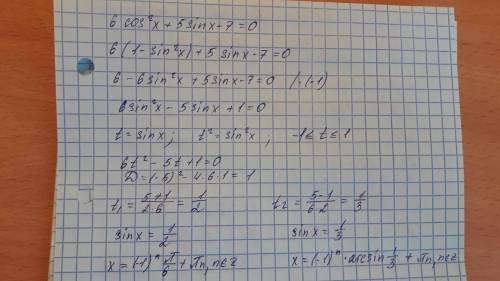 6 cos²x + 5 sinx - 7 = 0
6 (1 - sin²x) + 5 sinx - 7 = 0
6 - 6 sin²x + 5 sinx - 7 = 0 /·(-1)
6 sin²x - 5 sinx + 1 = 0
t = sinx ; t² = sin²x , -1 ≤ t ≤ 1
6t² - 5t + 1 = 0
D = (-5)² - 4·6·1 = 1
t₁ = (5+1)/(2·6) = 1/2 t₂ = (5-1)/(6·2) = 1/3
sinx = 1/2 sinx = 1/3
x = (-1)ⁿ π/6 + πn, n∈Z x = (-1)ⁿ · arcsin 1/3 + πn, n∈Z